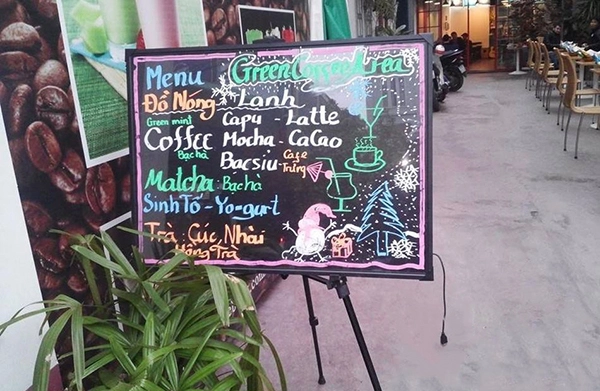 Menu Green Cuisa Area
Đồ Nóng - Lạnh
Green mint Capu - Latte
Coffee Mocha - CaCao
Bạc hà Bacsiu Cafe
Trứng
Matcha Bạc hà
Sinh Tố - Yo-gurt
Trà Cúc, Nhài
Hồng Trà